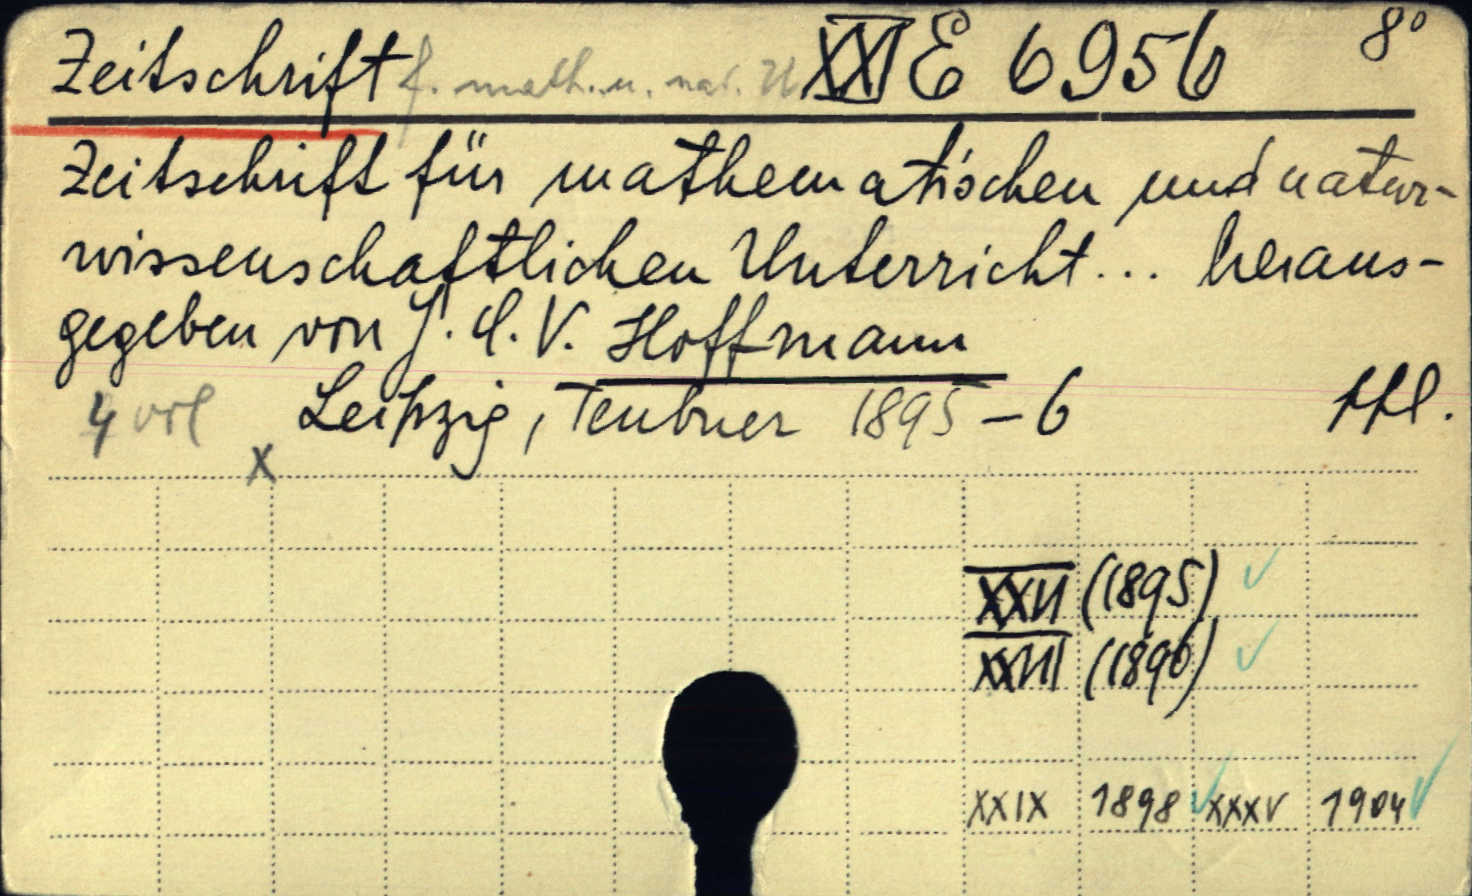 Zeitschrift f. math. u. nat. U XXI E 6956 8°
Zeitschrift für mathematischen und natur-
wissenschaftlichen Unterricht... heraus-
gegeben von J. C. V. Hoffmann
4 vol Leipzig, Teubner 1895-6
x
XXVI (1895) ✓
XXVII (1896) ✓
XXIX 1898 ✓ XXXV 1904 ✓